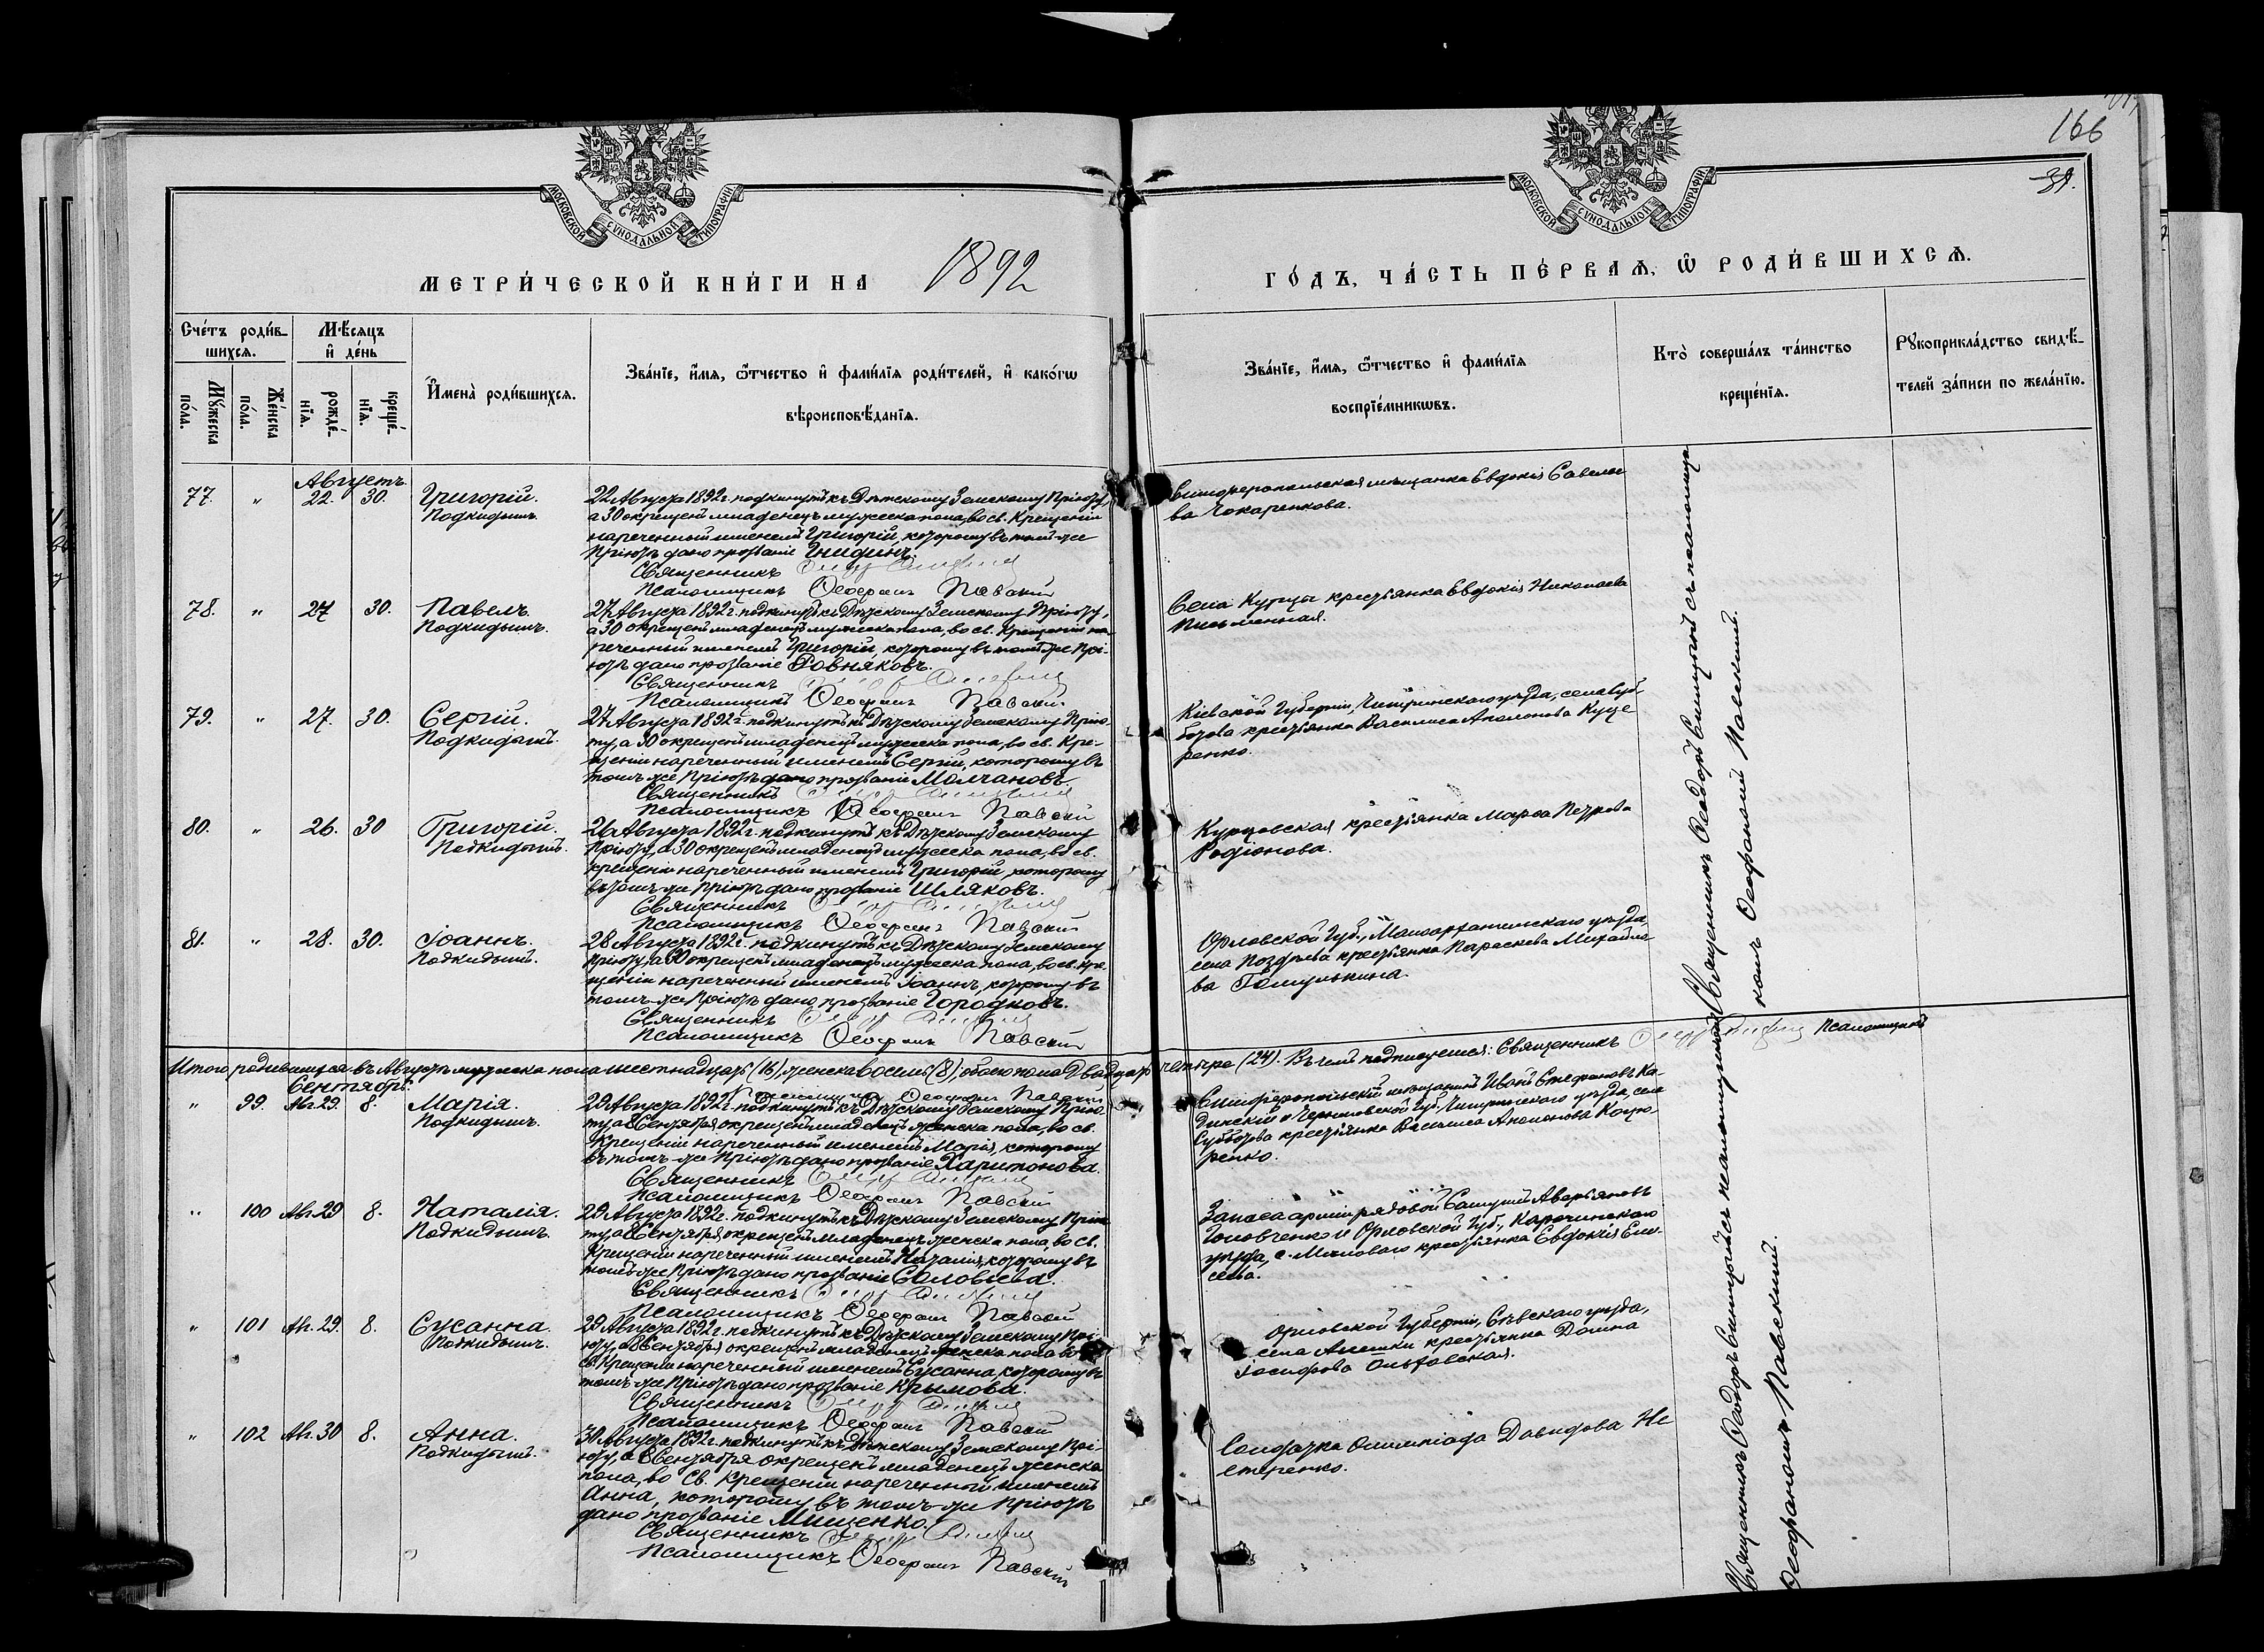 166
39.
МОСКОВСКОЙ СѴНОДАЛЬНОЙ ТИПОГРАФІИ
МОСКОВСКОЙ СѴНОДАЛЬНОЙ ТИПОГРАФІИ
МЕТРИ́ЧЕСКОЙ КНИ́ГИ НА 1892 ГО́ДЪ, ЧА́СТЬ ПЕ́РВАѦ, Ѽ РОДИ́ВШИХСѦ.
Сче́тъ роди́в-
шихсѧ.
Мѣ́сѧцъ
и҆ де́нь
Мꙋ́жеска
по́ла.
Же́нска
по́ла.
рожде́-
нїѧ.
креще́-
нїѧ.
И҆мена̀ роди́вшихсѧ.
Зва́нїе, и҆́мѧ, ѻ҆́тчество и҆ фами́лїѧ роди́телей, и҆ како́гѡ
вѣроисповѣ́данїѧ.
Зва́нїе, и҆́мѧ, ѻ҆́тчество и҆ фами́лїѧ
воспрїе́мникѡвъ.
Кто̀ соверша́лъ та́инство
креще́нїѧ.
Рꙋкоприкла́дство свидѣ́-
телей за́писи по жела́нїю.
Августъ
77. " 22. 30. Григорій.
Подкидышъ.
22 Августа 1892 г. подкинутъ къ Дѣтскому Земскому Пріюту,
а 30 окрещенъ младенецъ мужеска пола, во св. Крещеніи
нареченный именемъ Григорій, которому въ томъ-же
Пріютѣ дано прозваніе Гнидинъ.
Священникъ
Псаломщикъ Ѳеофанъ Павскій
Симферопольская мѣщанка Евдокія Савелье
ва Чокаренкова.
78. " 27 30. Павелъ.
Подкидышъ.
27 Августа 1892 г. подкинутъ къ Дѣтскому Земскому Пріюту,
а 30 окрещенъ младенецъ мужеска пола, во св. Крещеніи на-
реченный именемъ Григорій, которому въ томъ же Прі-
ютѣ дано прозваніе Ровняковъ.
Священникъ
Псаломщикъ Ѳеофанъ Павскій
Села Курцы крестьянка Евдокія Николаева
Письменная.
79. " 27. 30. Сергій.
Подкидышъ.
27 Августа 1892 г. подкинутъ къ Дѣтскому Земскому Прію-
ту, а 30 окрещенъ младенецъ мужеска пола, во св. Кре-
щеніи нареченный именемъ Сергій, которому въ
томъ же Пріютѣ дано прозваніе Молчановъ.
Священникъ
Псаломщикъ Ѳеофанъ Павскій
Кіевской Губерніи, Чигиринскаго уѣзда, села Суб-
ботова крестьянка Василиса Аполонова Куце-
ренко.
80. " 26. 30 Григорій.
Подкидышъ.
26 Августа 1892 г. подкинутъ къ Дѣтскому Земскому
Пріюту, а 30 окрещенъ младенецъ мужеска пола, во св.
крещеніи нареченный именемъ Григорій, которому
въ томъ-же Пріютѣ дано прозваніе Шляковъ.
Священникъ
Псаломщикъ Ѳеофанъ Павскій
Курцовская крестьянка Марѳа Петрова
Родіонова.
81. " 28. 30. Іоаннъ.
Подкидышъ.
28 Августа 1892 г. подкинутъ къ Дѣтскому Земскому
Пріюту, а 30 окрещенъ младенецъ мужеска пола, во св. Кре-
щеніи нареченный именемъ Іоаннъ, которому въ
томъ-же Пріютѣ дано прозваніе Городковъ.
Священникъ
Псаломщикъ Ѳеофанъ Павскій
Орловской Губ., Малоархангельскаго уѣзда,
села Поздѣева крестьянка Параскева Михайло-
ва
Священникъ Ѳеодоръ съ псаломщи-
комъ Ѳеофаномъ Павскимъ.
Итого родившихся въ Августѣ мужеска пола шестнадцать (16), женска восемь (8), обоего пола двадцать четыре (24). Въ чемъ подписуемся: Священникъ Псаломщикъ
Ѳеофанъ Павскій
Сентябрь
" 99. Ав. 29. 8. Марія.
Подкидышъ.
29 Августа 1892 г. подкинутъ къ Дѣтскому Земскому Прію-
ту, а 8 Сентября окрещенъ младенецъ женска пола, во св.
Крещеніи нареченный именемъ Марія, которому
въ томъ-же Пріютѣ дано прозваніе Харитонова.
Священникъ
Псаломщикъ Ѳеофанъ Павскій
Симферопольскій мѣщанинъ Иванъ Стефановъ Ка-
динскій и Черниговской Губ. Чигиринскаго уѣзда, села
Субботова крестьянка Василиса Аполонова Коцю-
ренко.
" 100 Ав. 29 8. Наталія.
Подкидышъ.
29 Августа 1892 г. подкинутъ къ Дѣтскому Земскому Прію-
ту, а 8 Сентября окрещенъ младенецъ женска пола, во св.
Крещеніи нареченный именемъ Наталія, которому въ
томъ же Пріютѣ дано прозваніе Соловьева.
Священникъ
Псаломщикъ Ѳеофанъ Павскій
Запаса арміи рядовой Самуилъ Аверьяновъ
Головченко и Орловской Губ., Карочинскаго
уѣзда, с. крестьянка Евдокія Ели-
сеева.
" 101 Ав. 29. 8. Сусанна.
Подкидышъ.
29 Августа 1892 г. подкинутъ къ Дѣтскому Земскому Прі-
юту, а 8 Сентября окрещенъ младенецъ женска пола во
св. Крещеніи нареченный именемъ Сусанна, которому въ
томъ-же Пріютѣ дано прозваніе Крымова.
Священникъ
Псаломщикъ Ѳеофанъ Павскій
Орловской Губерніи, Сѣвскаго уѣзда,
села крестьянка Домна
Іосифова Ольховская.
" 102 Ав. 30 8. Анна.
Подкидышъ.
30 Августа 1892 г. подкинутъ къ Дѣтскому Земскому Прі-
юту, а 8 Сентября окрещенъ младенецъ женска
пола, во Св. Крещеніи нареченный именемъ
Анна, которому въ томъ-же Пріютѣ
дано прозваніе Мищенко.
Священникъ
Псаломщикъ Ѳеофанъ Павскій
Солдатка Олимпіада Давидова Не
стеренко.
Священникъ Ѳеодоръ съ псаломщикомъ
Ѳеофаномъ Павскимъ.